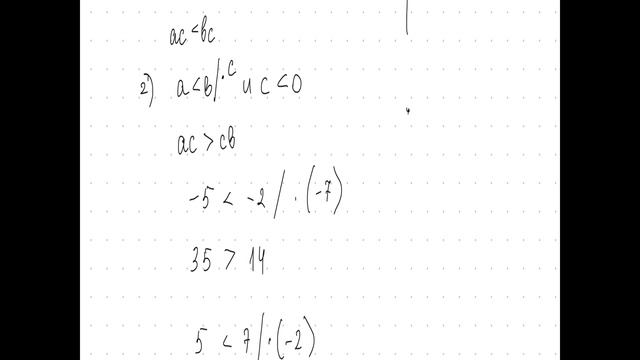 ac < bc
2) a < b / · c и c < 0
ac > cb
-5 < -2 / · (-7)
35 > 14
5 < 7 / · (-2)